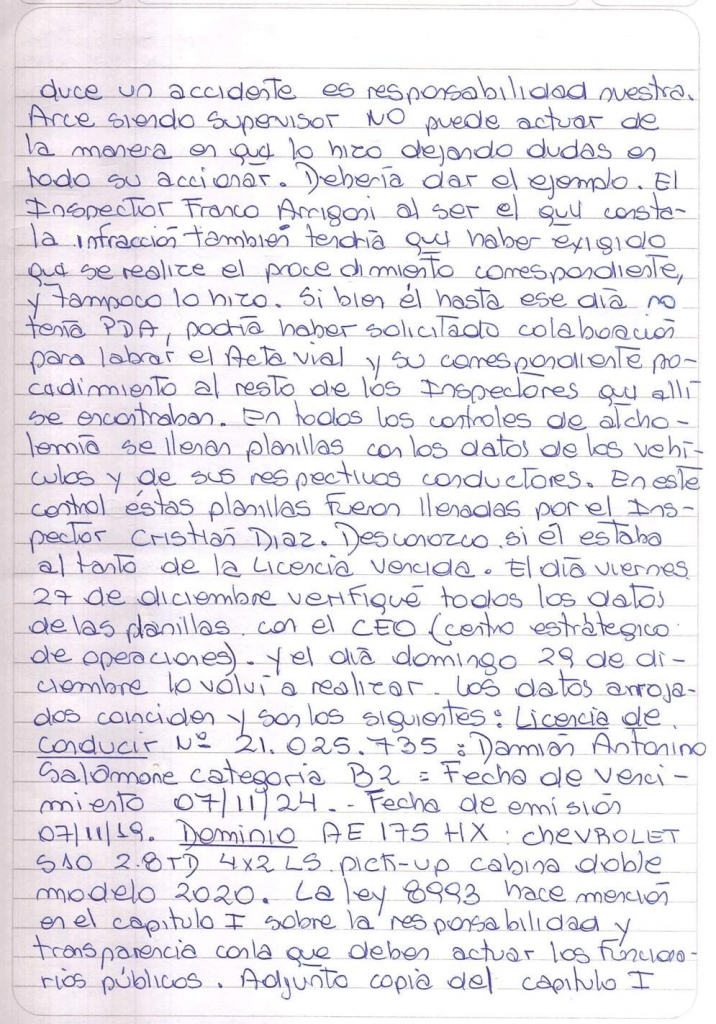 duce un accidente es responsabilidad nuestra.
Arce siendo supervisor NO puede actuar de
la manera en que lo hizo dejando dudas en
todo su accionar. Debería dar el ejemplo. El
Inspector Franco Arrigoni al ser el que consta-
la infracción también tendría que haber exigido
que se realize el procedimiento correspondiente,
y tampoco lo hizo. Si bien él hasta ese día no
tenía PDA, podría haber solicitado colaboración
para labrar el Acta vial y su correspondiente pro-
cedimiento al resto de los Inspectores que allí
se encontraban. En todos los controles de alcho-
lemia se llenan planillas con los datos de los vehí-
culos y de sus respectivos conductores. En este
control éstas planillas fueron llenadas por el Ins-
pector Cristian Diaz. Desconozco si él estaba
al tanto de la Licencia Vencida. El día viernes
27 de diciembre verifiqué todos los datos
de las planillas con el CEO (centro estrategico
de operaciones). y el día domingo 29 de di-
ciembre lo volví a realizar. Los datos arroja-
dos coinciden y son los siguientes: Licencia de
conducir Nº 21.025.735 : Damián Antonino
Salomone categoria B2 = Fecha de venci-
miento 07/11/24. - Fecha de emisión
07/11/19. Dominio AE 175 HX : CHEVROLET
S10 2.8TD 4x2 LS pick-up cabina doble
modelo 2020. La ley 8993 hace mención
en el capitulo I sobre la responsabilidad y
transparencia con la que deben actuar los funciona-
rios públicos. Adjunto copia del capitulo I